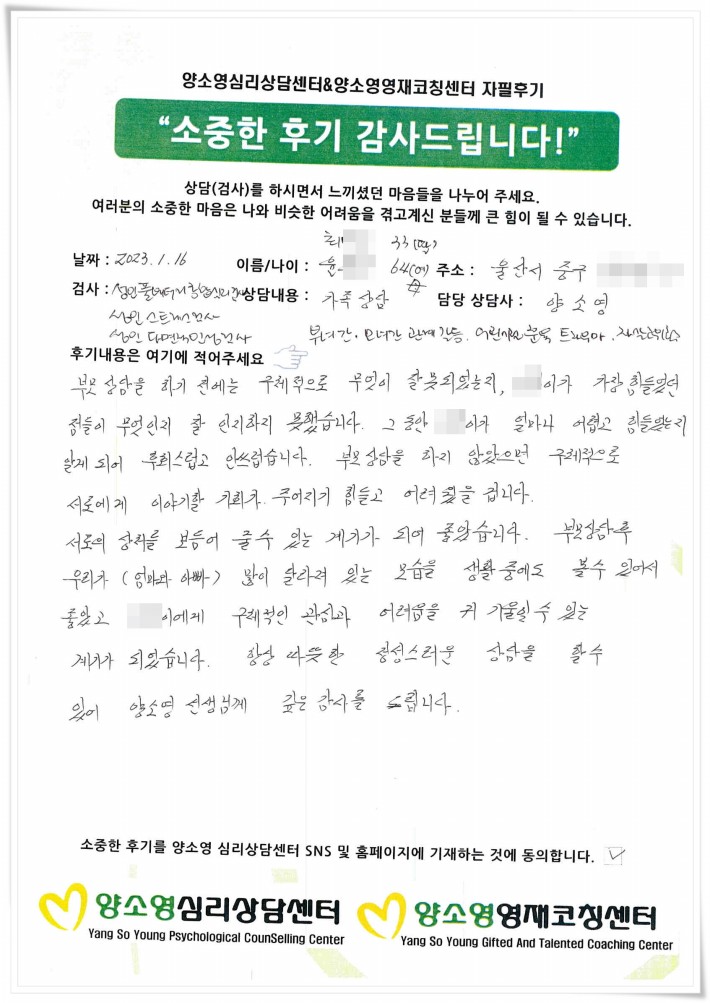 양소영심리상담센터&양소영영재코칭센터 자필후기
“소중한 후기 감사드립니다!”
상담(검사)를 하시면서 느끼셨던 마음들을 나누어 주세요.
여러분의 소중한 마음은 나와 비슷한 어려움을 겪고계신 분들께 큰 힘이 될 수 있습니다.
최 33(딸)
날짜 : 2023.1.16 이름/나이 : 윤 64(여) 주소 : 울산시 중구
검사 : 성인풀배터리종합심리검사 상담내용 : 가족상담 담당 상담사 : 양소영
성인 스트레스검사
성인 대면 검사 부녀간·모녀간 관계갈등, 어린시절 트라우마,
후기내용은 여기에 적어주세요
부모 상담을 하기 전에는 구체적으로 무엇이 잘못되었는지, 이가 가장 힘들었던
점들이 무엇인지 잘 인지하지 못했습니다. 그 동안 이가 얼마나 어렵고 힘들었는지
알게 되어 후회스럽고 안쓰럽습니다. 부모상담을 하지 않았으면 구체적으로
서로에게 이야기할 기회가 주어지기 힘들고 어려웠을 겁니다.
서로의 상처를 보듬어 줄수 있는 계기가 되어 좋았습니다. 부모상담후
우리가 (엄마와 아빠) 많이 달라져 있는 모습을 생활중에도 볼수 있어서
좋았고 이에게 구체적인 관심과 어려움을 귀 기울일 수 있는
계기가 되었습니다. 항상 따뜻한 정성스러운 상담을 할수
있어 양소영 선생님께 깊은 감사를 드립니다.
소중한 후기를 양소영 심리상담센터 SNS 및 홈페이지에 기재하는 것에 동의합니다.
양소영심리상담센터 양소영영재코칭센터
Yang So Young Psychological CounSelling Center Yang So Young Gifted And Talented Coaching Center